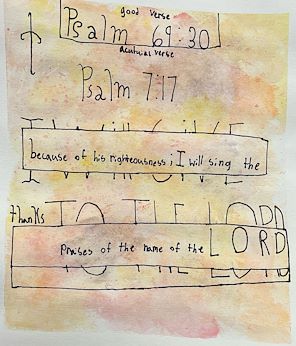 good verse
Psalm 69:30
Acutuial verse
Psalm 7:17
I Will GIVE
because of his righteousness; I will sing the
thanks TO THE LORD
Praises of the name of the LORD
TO THE LORD